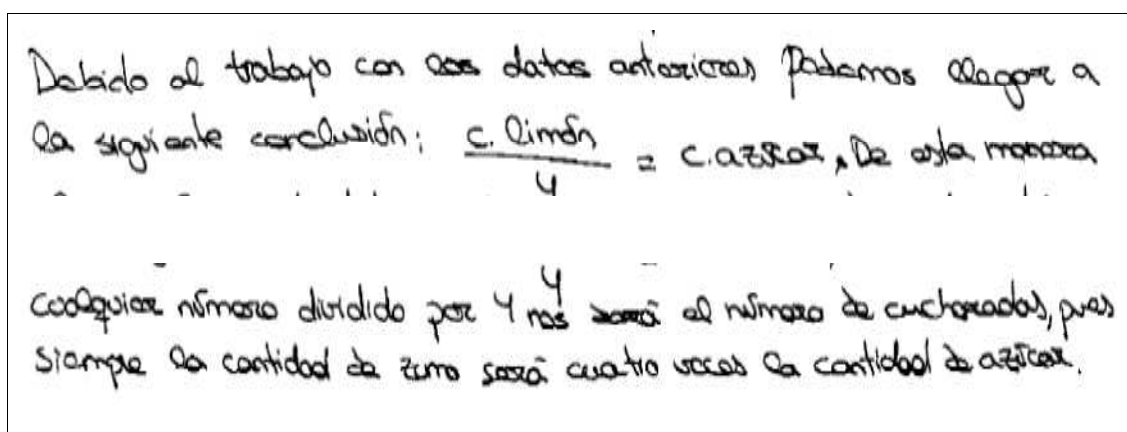 Debido al trabajo con los datos anteriores Podemos llegar a
la siguiente conclusión: c. limón / 4 = c. azúcar, De esta manera
cualquier número dividido por 4 nos será el número de cucharadas, pues
siempre la cantidad de zumo será cuatro veces la cantidad de azúcar.